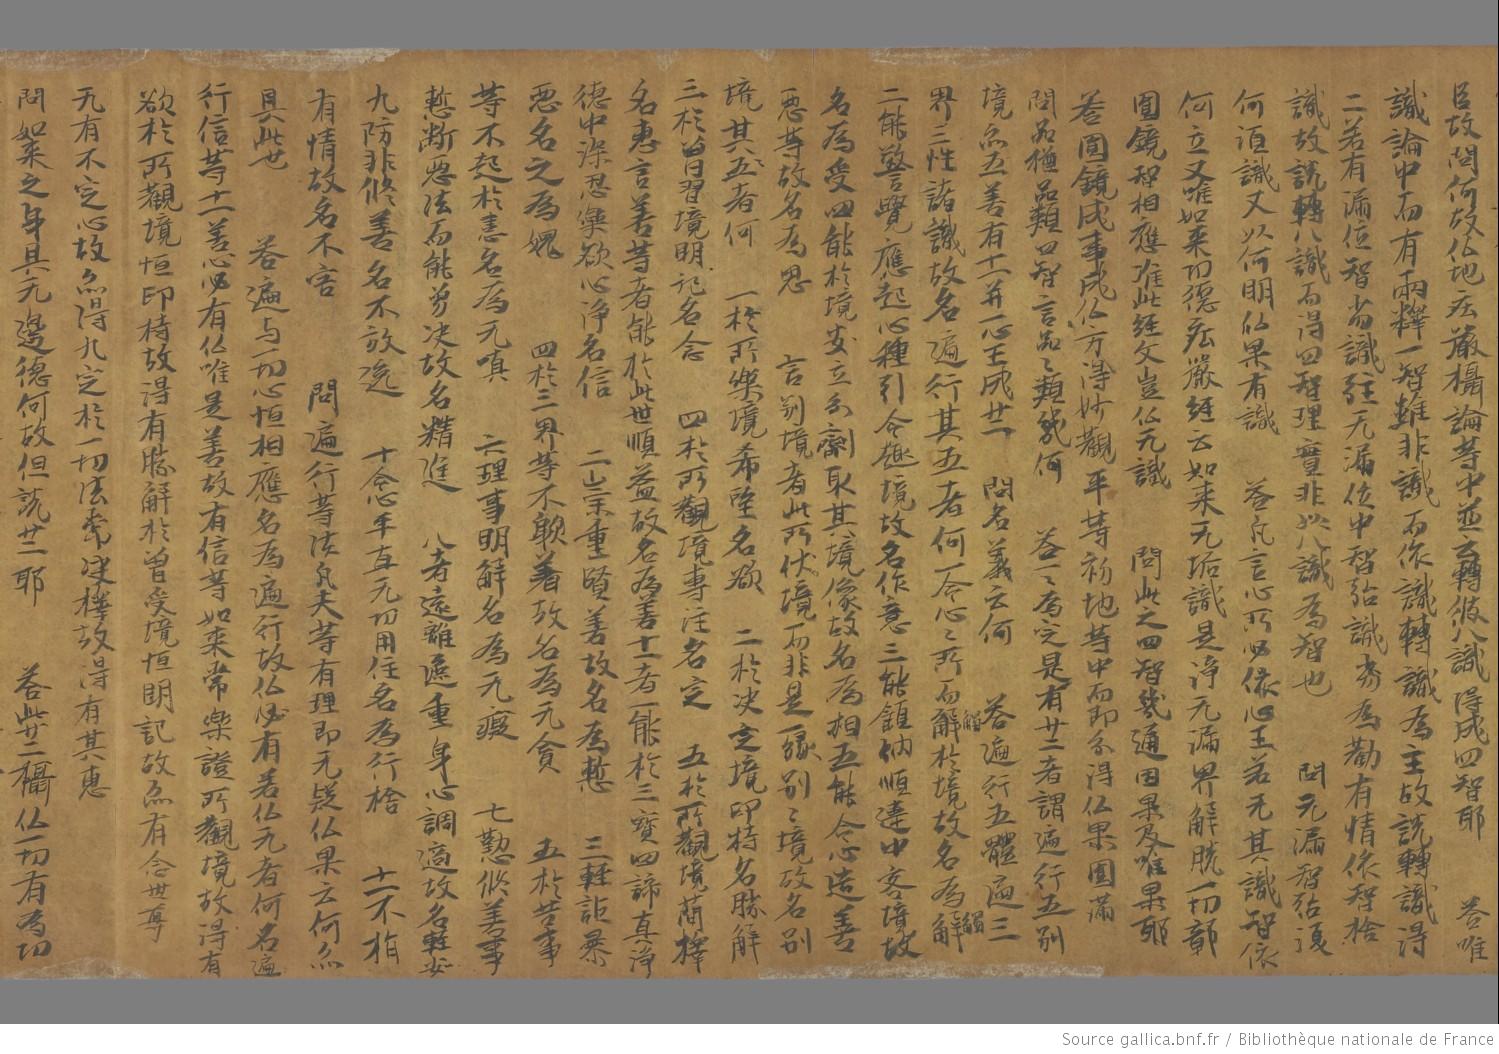 臣故問何故仏地庄嚴攝論等中並云轉彼八識得成四智耶 答唯
識論中而有兩釋一智雖非識而依識轉識為主故説轉識得
二若有漏位智劣識強无漏位中智強識劣為勸有情依智捨
識故説轉八識而得四智理實非以八識為智也 問无漏智強
何須識又以何明仏果有識 答凡言心所必依心王若无其識智依
何立又唯如来功德庄嚴經云如来无垢識是淨无漏界解脱一切鄣
圓鏡智相應准此經文豈仏无識 問此之四智幾通因果及唯果耶
答圓鏡成事成仏方得妙觀平等初地等中而即分得仏果圓滿
問品種品類四智言品々類幾何 答々為定是有廿二者謂遍行五別
境為五善有十一并心王成廿二 問名義云何 答遍行五體遍三
界三性諸識故名遍行其五者何一令心々所而觸於境故名為觸
二能警覺應起心種引令趣境故名作意三能領納順違中容境故
名為受四能於境安立分劑取其境像故名為想五能令心造善
惡等故名為思 言別境者此所伏境而非是一緣別々境故名別
境其五者何 一於所樂境希望名欲 二於决定境印持名勝解
三於曽習境明記名念 四於所觀境專注名定 五於所觀境蕳擇
名惠言善等者能於此世順益故名為善十一者一能於三寶四諦真淨
德中深忍樂欲心淨名信 二崇重賢善故名為慙 三輕詎暴
惡名之為媿 四於三界等不躭著故名為无貪 五於苦事
等不起於恚名為无嗔 六理事明解名為无癡 七懃修善事
慙断惡法而能勇决故名精進 八者遠離麁重身心調適故名輕安
九防非修善名不放逸 十念平直无功用住名為行捨 十一不損
有情故名不害 問遍行等法凡夫等有理即无疑仏果云何亦
具此世 答遍与一切心恒相應名為遍行故仏必有若仏无者何名遍
行信等十一善心必有仏唯是善故有信等如来常樂證所觀境故得有
欲於所觀境恒印持故得有勝解於曽受境恒明記故亦有念世尊
无有不定心故亦得九定於一切法常决擇故得有其惠
問如来之身具无邊德何故但説廿二耶 答此廿二攝仏一切有為功
Source gallica.bnf.fr / Bibliothèque nationale de France